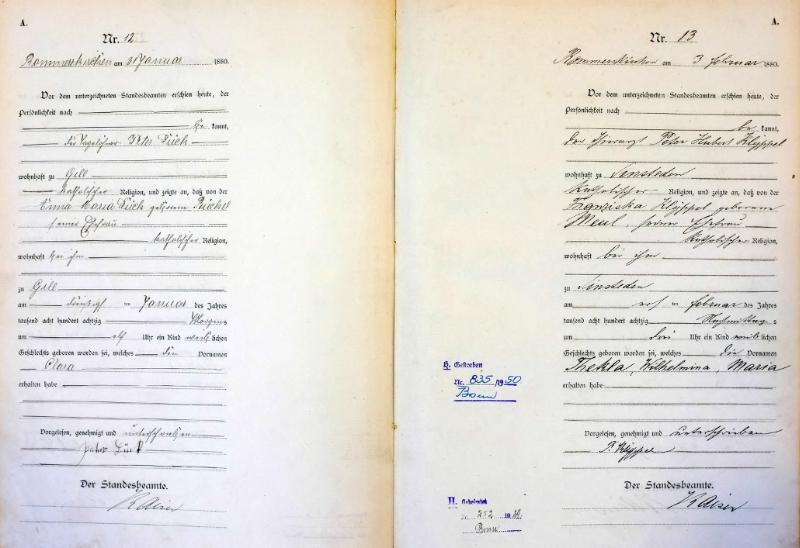 A.
Nr. 12
Rommerskirchen am 31 Januar 1880.
Vor dem unterzeichneten Standesbeamten erschien heute, der
Persönlichkeit nach
be kannt,
der Tagelöhner Peter
wohnhaft zu Gill
katholischer Religion, und zeigte an, daß von der
Anna Maria geborenen
seiner Ehefrau
katholischer Religion,
wohnhaft bei ihm
zu Gill
am Januar des Jahres
tausend acht hundert achtzig Morgens
um elf Uhr ein Kind weib lichen
Geschlechts geboren worden sei, welches den Vornamen
Clara
erhalten habe
Vorgelesen, genehmigt und unterschrieben
Peter
Der Standesbeamte.
Kaiser
A.
Nr. 13
Rommerskirchen am 3 Februar 1880.
Vor dem unterzeichneten Standesbeamten erschien heute, der
Persönlichkeit nach
be kannt,
der Thierarzt Peter Hubert Klüppel
wohnhaft zu Sinsteden
katholischer Religion, und zeigte an, daß von der
Franziska Klüppel geborene
Meul, seiner Ehefrau
katholischer Religion,
wohnhaft bei ihm
zu Sinsteden
am Februar des Jahres
tausend acht hundert achtzig Nachmittags
um drei Uhr ein Kind weib lichen
Geschlechts geboren worden sei, welches die Vornamen
Thekla, Wilhelmina, Maria
erhalten habe
Vorgelesen, genehmigt und unterschrieben
P. Klüppel
Der Standesbeamte.
Kaiser
H. Gestorben
Nr. 835/1950
Bonn
II. Geheiratet
Bonn